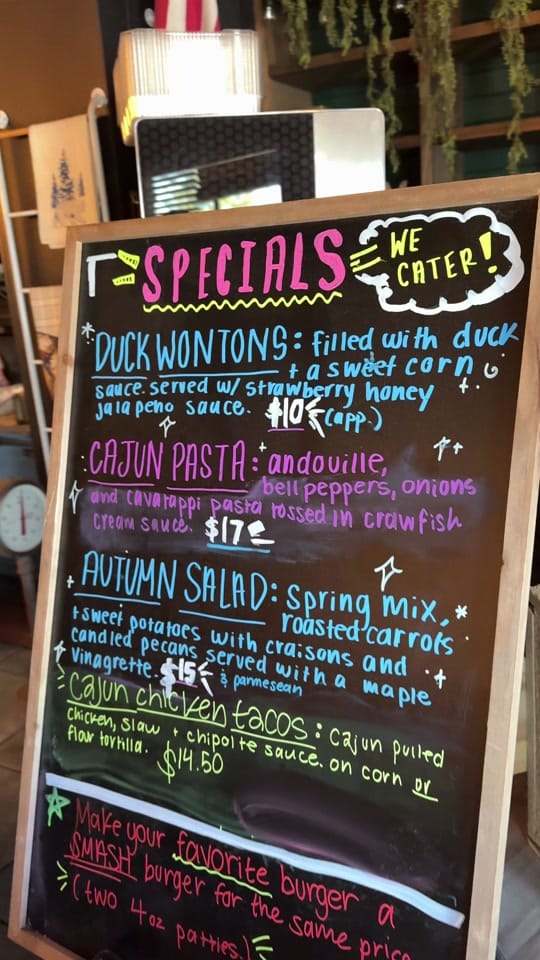 SPECIALS
WE
CATER!
DUCK WONTONS: filled with duck
+ a sweet corn
sauce. served w/ strawberry honey
jalapeno sauce. $10 (app.)
CAJUN PASTA: andouille,
bell peppers, onions
and cavatappi pasta tossed in crawfish
cream sauce. $17
AUTUMN SALAD: spring mix,
roasted carrots
+ sweet potatoes with craisons and
candied pecans served with a maple
vinagrette. $15 & parmesean
cajun chicken tacos: cajun pulled
chicken, slaw + chipolte sauce. on corn or
flour tortilla. $14.50
Make your favorite burger a
SMASH burger for the same price
(two 4oz patties.)